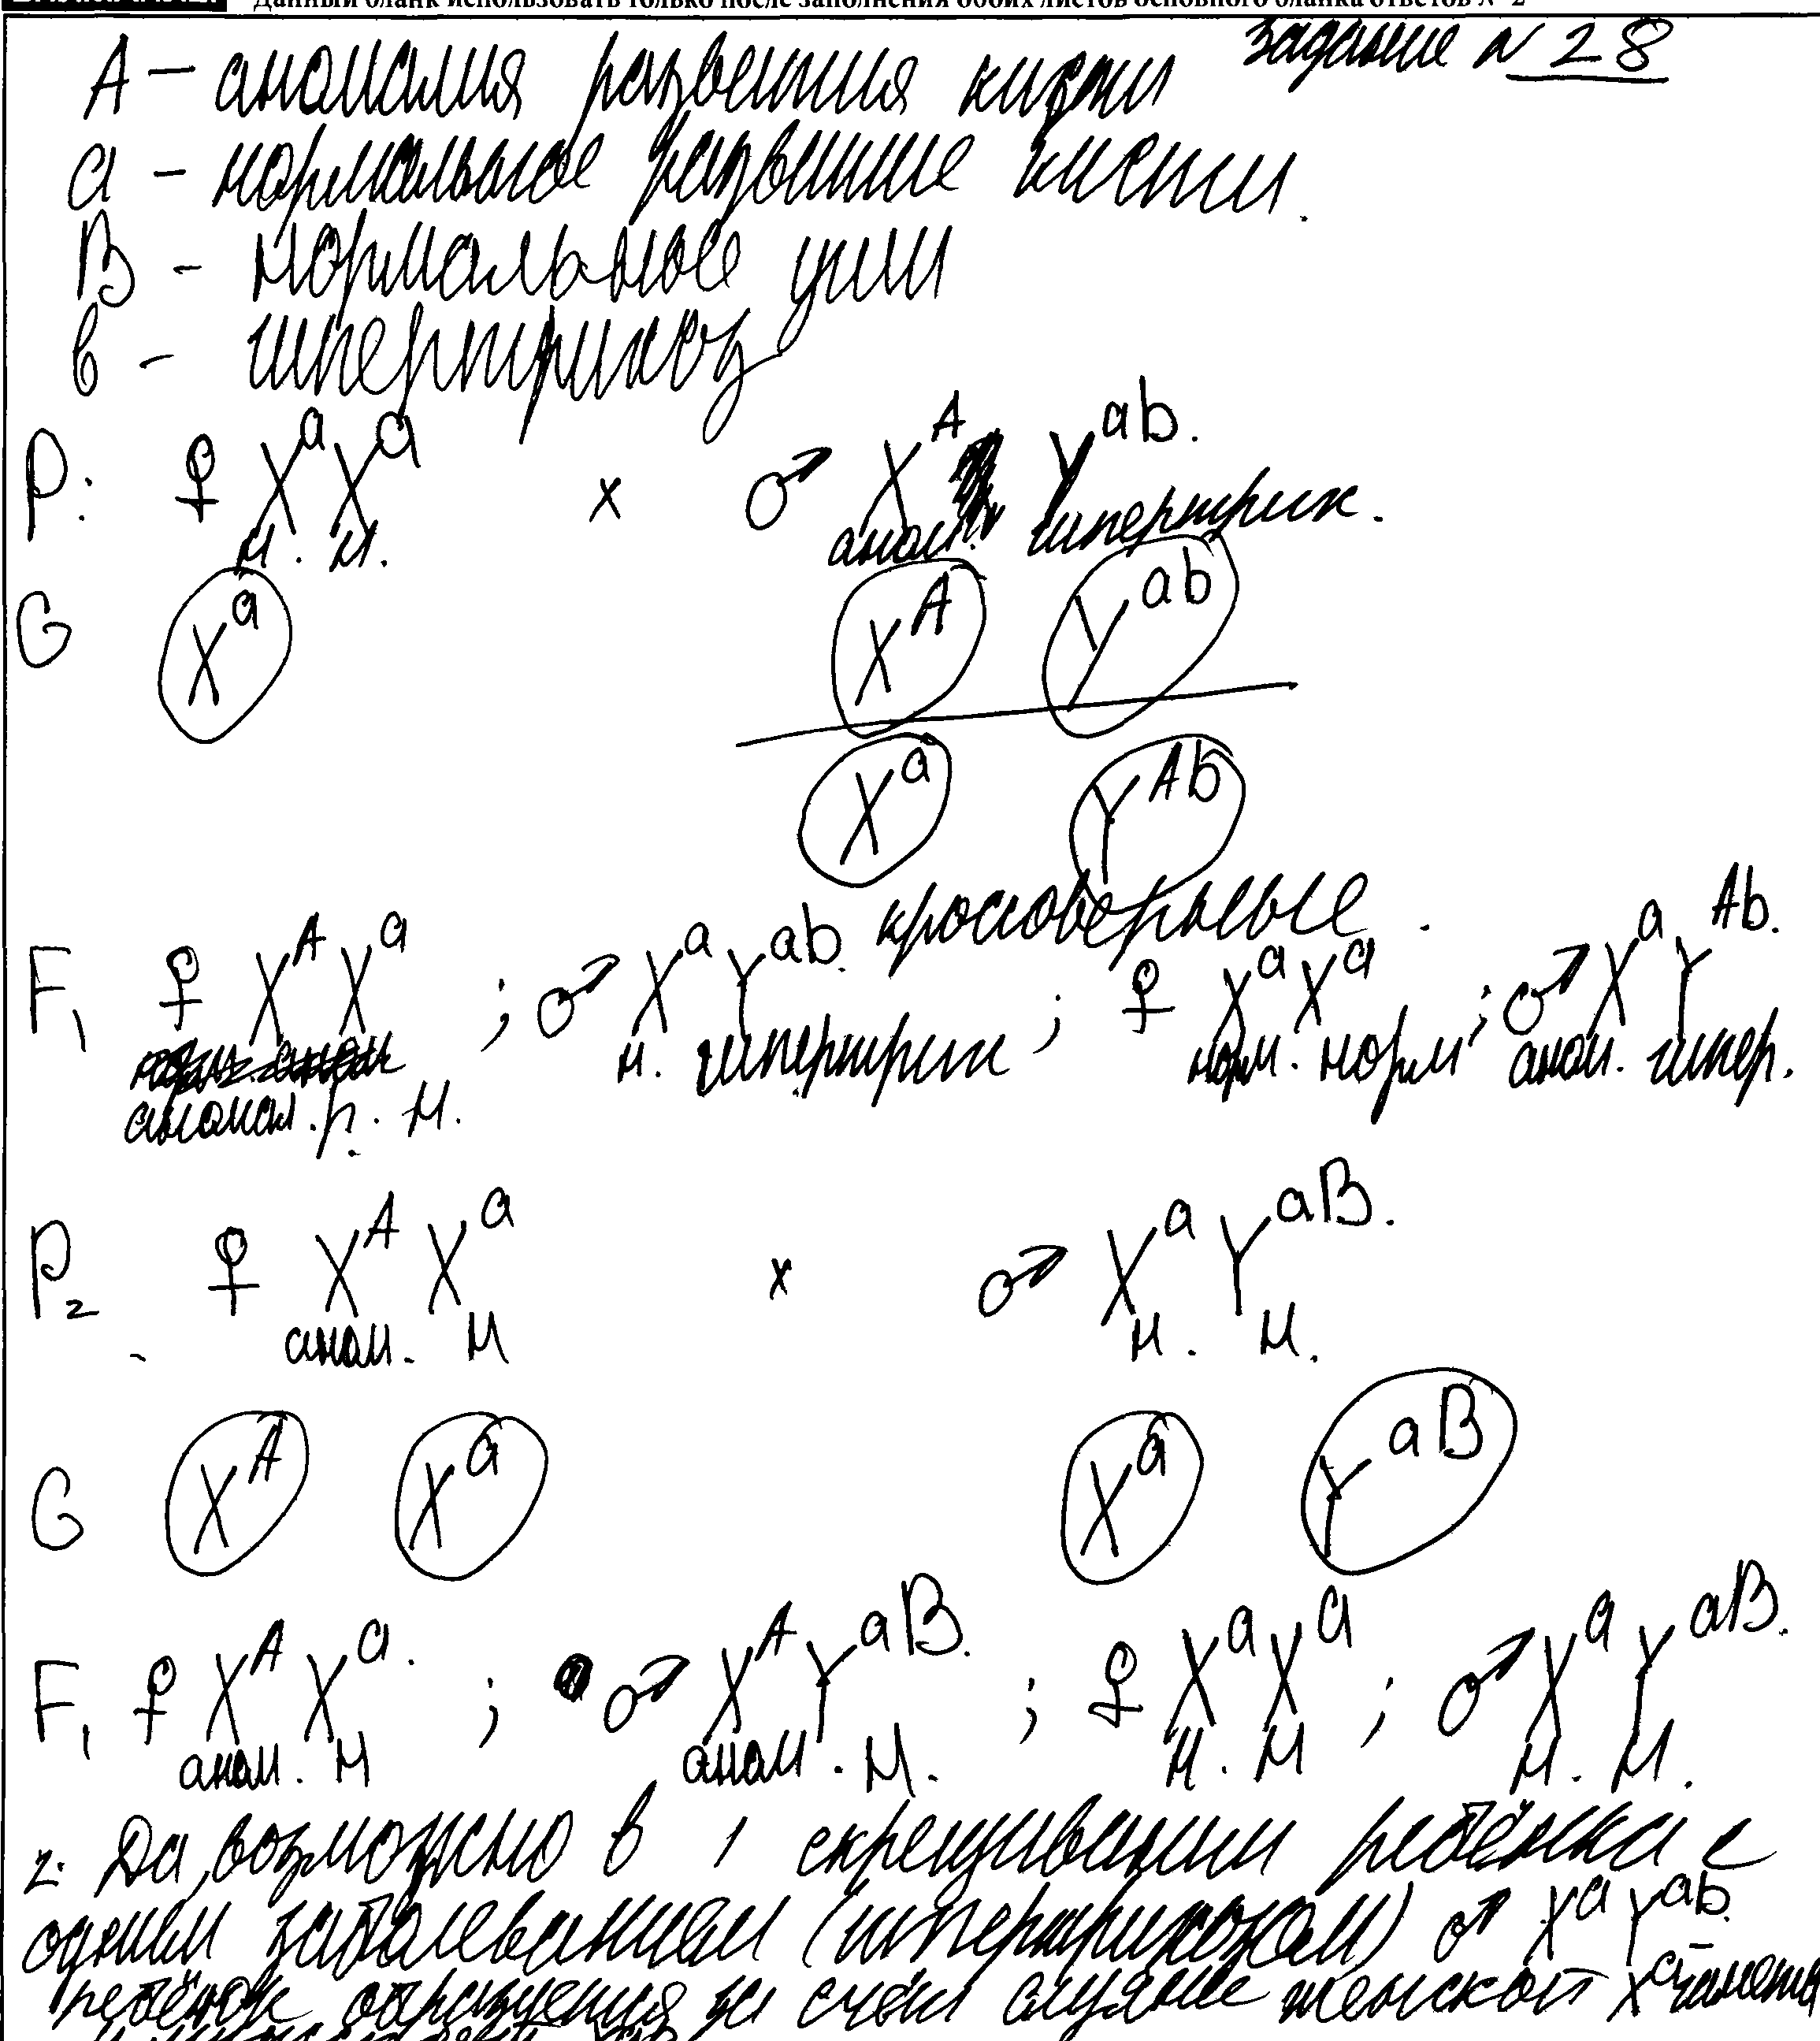 Данный бланк использовать только после заполнения обоих листов основного бланка ответов № 2
Задание № 28
А – аномалия развития кисти
а – нормальное развитие кисти.
В – нормальное уши
в – гипертрихоз
P: ♀ XᵃXᵃ × ♂ Xᴬ Yᵃᵇ.
н. н. аном. гипертрих.
G Xᵃ Xᴬ Yᵃᵇ
Xᵃ Yᴬᵇ
кроссоверные.
F₁ ♀ XᴬXᵃ ; ♂ XᵃYᵃᵇ ; ♀ XᵃXᵃ ; ♂ XᵃYᴬᵇ.
н. гипертрих норм. норм аном. гипер.
аномал. р. н.
P₂ ♀ Xᴬ Xᵃ × ♂ Xᵃ Yᵃᴮ.
аном. н н. н.
G Xᴬ Xᵃ Xᵃ Yᵃᴮ
F₁ ♀ Xᴬ Xᵃ. ; ♂ XᴬYᵃᴮ. ; ♀ XᵃXᵃ ; ♂ XᵃYᵃᴮ.
аном. н аном. н. н. н н. н.
2. Да, возможно в 1 скрещивании ребёнка с
одним заболеванием (гипертрихозом) ♂ XᵃYᵃᵇ
ребёнок образуется за счёт слияние женской Xᵃ